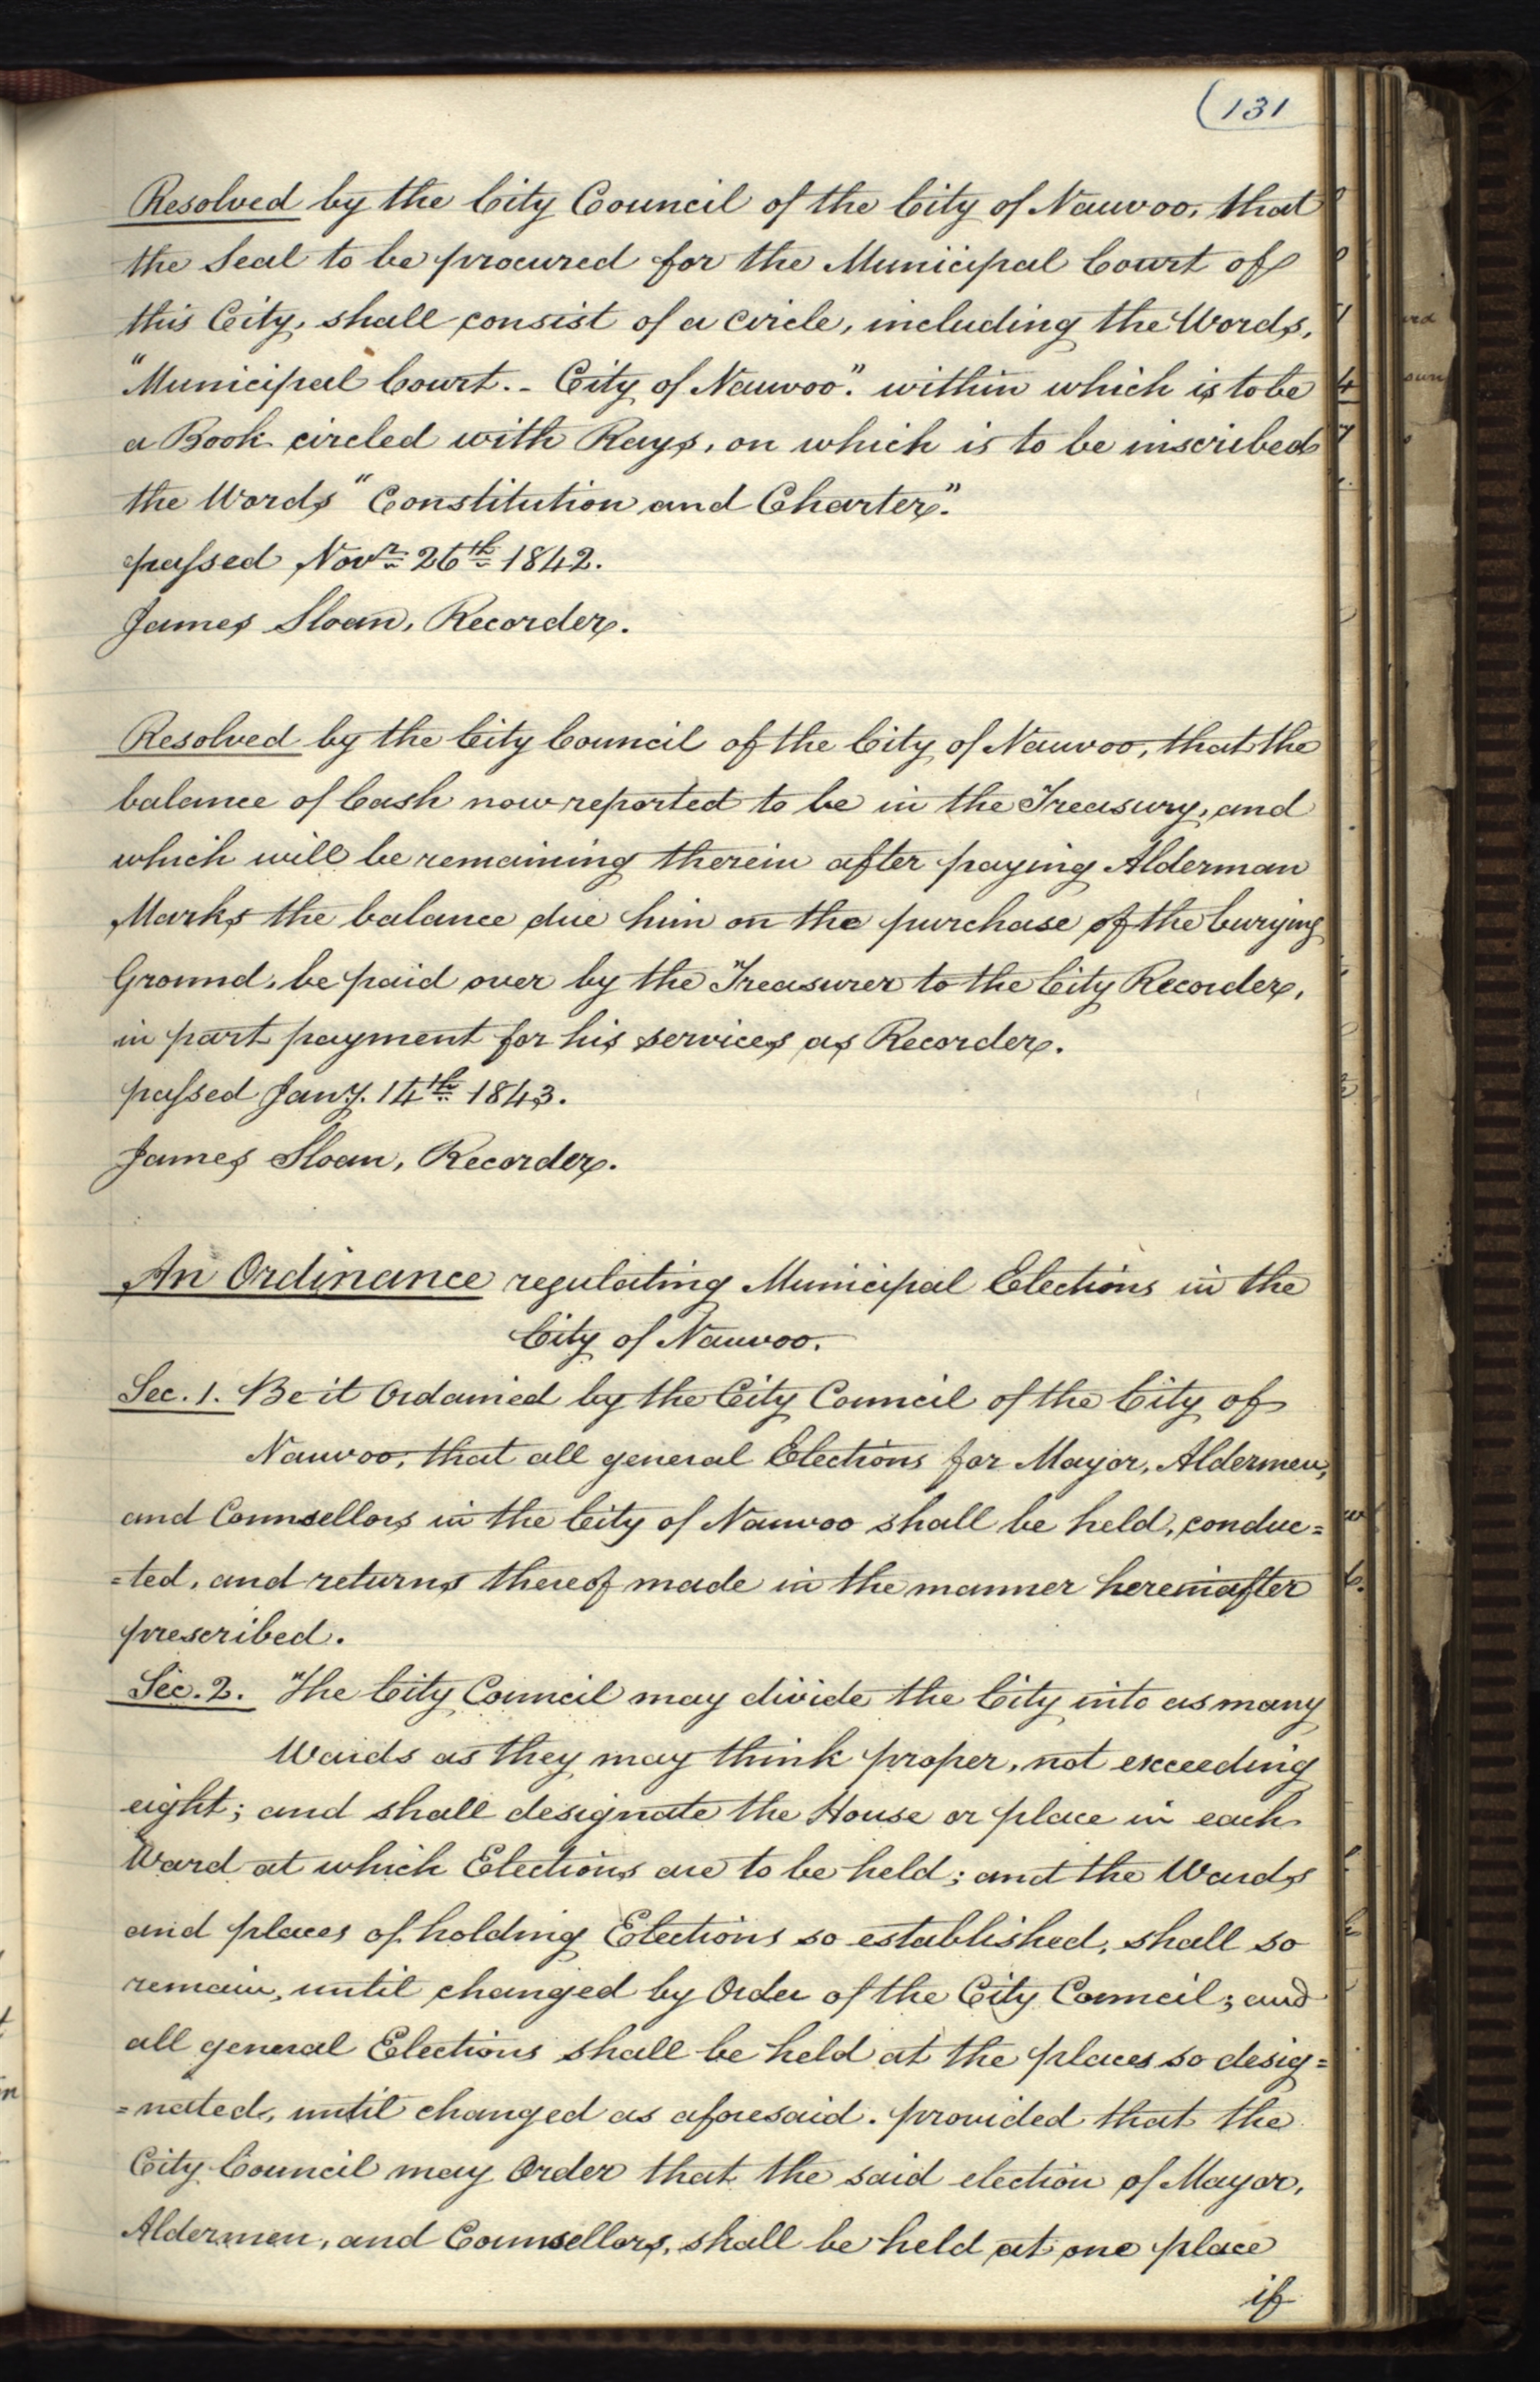 (131
Resolved by the City Council of the City of Nauvoo, that
the Seal to be procured for the Municipal Court of
this City, shall consist of a circle, including the Words,
"Municipal Court. - City of Nauvoo". within which is to be
a Book circled with Rays, on which is to be inscribed
the Words "Constitution and Charter".
passed Novr. 26th 1842.
James Sloan, Recorder.
Resolved by the City Council of the City of Nauvoo, that the
balance of Cash now reported to be in the Treasury, and
which will be remaining therein after paying Alderman
Marks the balance due him on the purchase of the burying
Ground, be paid over by the Treasurer to the City Recorder,
in part payment for his services as Recorder.
passed Jany. 14th 1843.
James Sloan, Recorder.
An Ordinance regulating Municipal Elections in the
City of Nauvoo.
Sec. 1. Be it Ordained by the City Council of the City of
Nauvoo, that all general Elections for Mayor, Aldermen,
and Counsellors in the City of Nauvoo shall be held, conduc=
=ted, and returns thereof made in the manner hereinafter
prescribed.
Sec. 2. The City Council may divide the City into as many
Wards as they may think proper, not exceeding
eight; and shall designate the House or place in each
Ward at which Elections are to be held; and the Wards
and places of holding Elections so established, shall so
remain, until changed by Order of the City Council; and
all general Elections shall be held at the places so desig=
=nated, until changed as aforesaid. provided that the
City Council may Order that the said election of Mayor,
Aldermen, and Counsellors, shall be held at one place
if